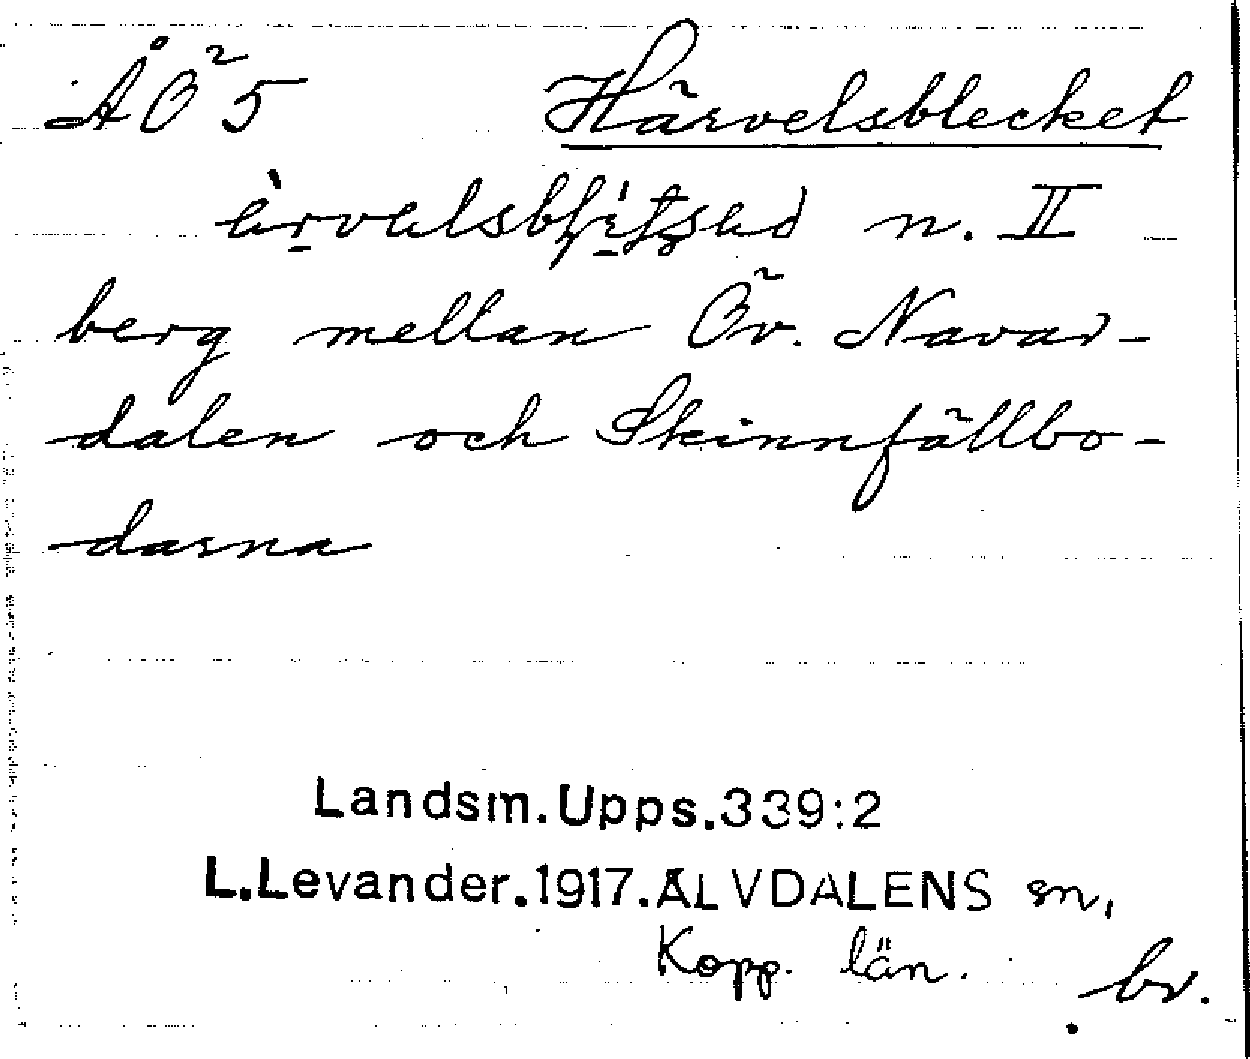 ÅÖ 5 Härvelsblecket
n. II
berg mellan Öv. Navar-
dalen och Skinnfällbo-
darna
Landsm.Upps.339:2
L.Levander.1917.ÄLVDALENS sn,
Kopp. län. br.